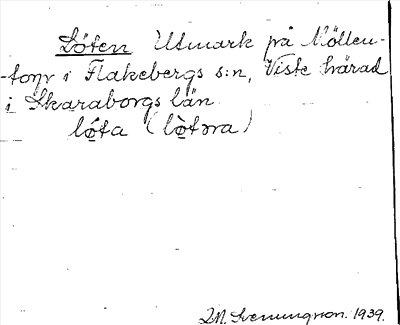 Löten Utmark på Möllen-
-torp i Flakebergs s:n, Viste härad
i Skaraborgs län
lǫ́ta (lǫ̀tǝra)
Svenungson. 1939.